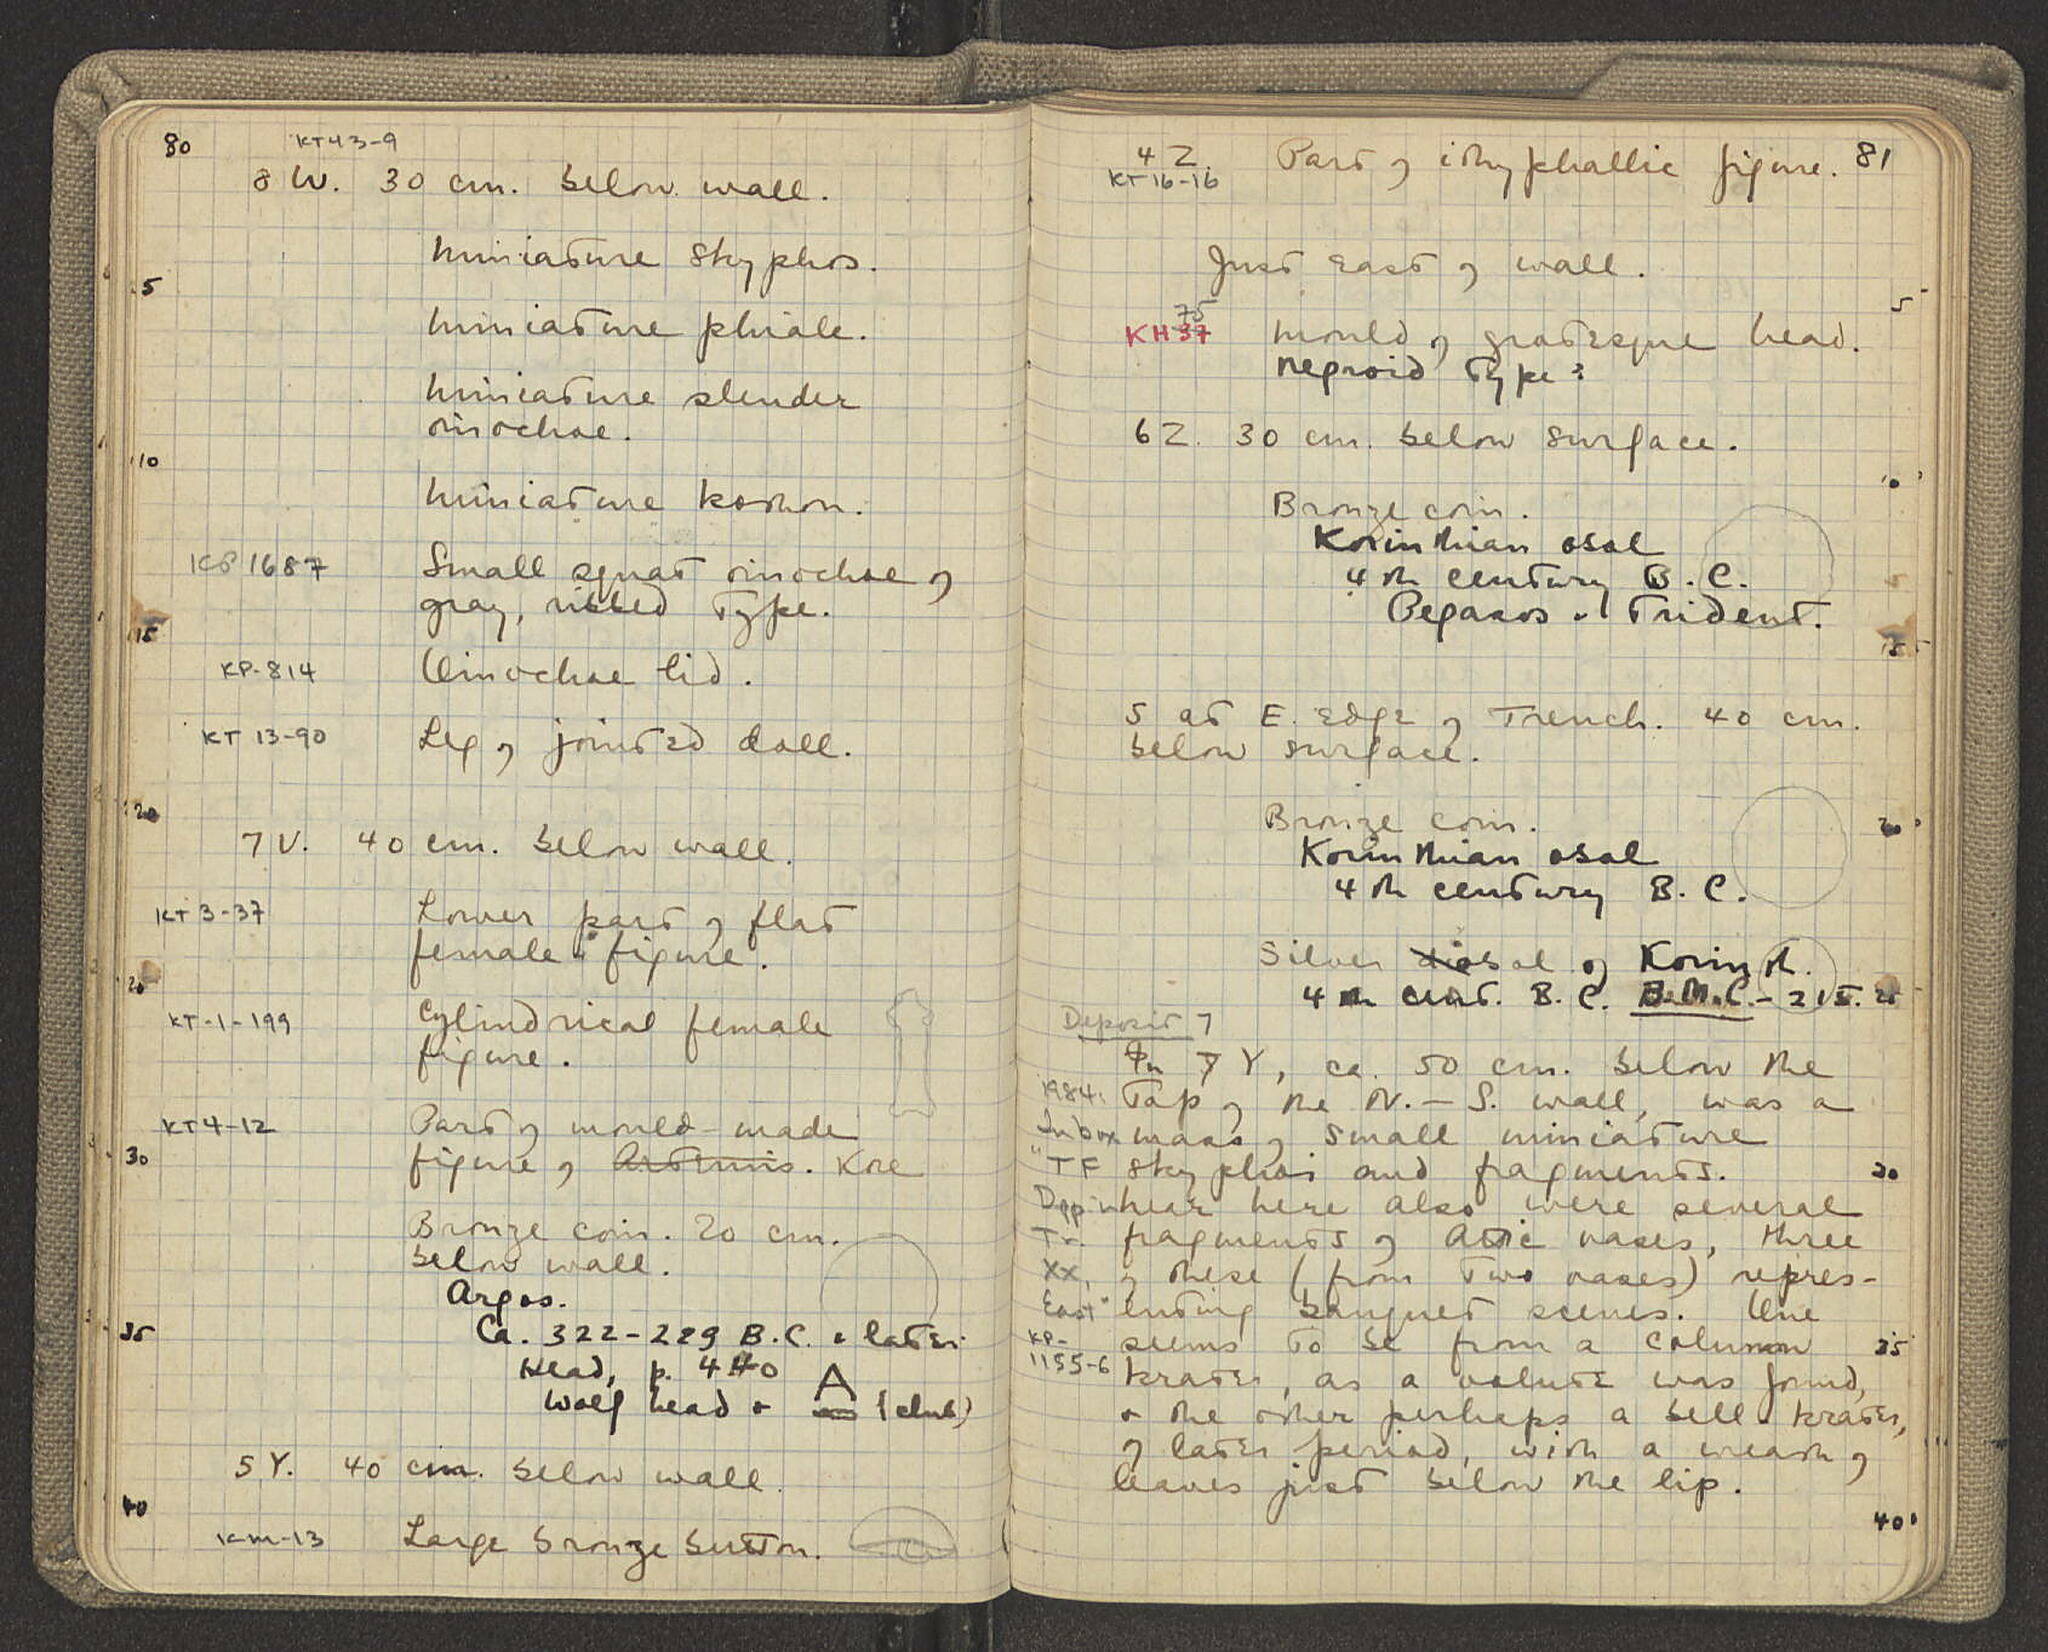 80
KT43-9
8 W. 30 cm. below wall.
Miniature skyphos.
5
Miniature phiale.
Miniature slender
oinochoe.
10
Miniature kothon.
KP 1687 Small squat oinochoe of
gray, ribbed type.
15
KP-814 Oinochoe lid.
KT 13-90 Leg of jointed doll.
20
7 V. 40 cm. below wall.
KT 3-37 Lower part of flat
female figure.
KT-1-199 Cylindrical female
figure.
KT4-12 Part of mould-made
30 figure of Artemis. Kore
Bronze coin. 20 cm.
below wall.
Argos.
35 Ca. 322-229 B.C. & later.
Head, p. 440
Wolf head & A (club)
5 Y. 40 cm. below wall.
40
KM-13 Large bronze button.
81
4 Z. Part of ithyphallic figure.
KT16-16
Just east of wall.
75 5
KH 37 Mould of grotesque head.
Negroid type?
6 Z. 30 cm. below surface.
10
Bronze coin.
Korinthian obol
4th century B.C.
Pegasos & Trident.
15
5 at E. edge of Trench. 40 cm.
below surface.
Bronze coin. 20
Korinthian obol
4th century B.C.
Silver diobol of Korinth.
4th cent. B.C. B.M.C.- 215. 25
Deposit 7
In 7 Y, ca. 50 cm. below the
1984: Top of the N.-S. wall, was a
In box mass of small miniature
"TF skyphoi and fragments. 30
Dpp in Near here also were several
Tr. fragments of Attic vases, three
XX, of these (from two vases) repres-
East" enting banquet scenes. One
KP- seems to be from a column 35
1155-6 krater, as a volute was found,
& the other perhaps a bell krater,
of later period, with a wreath of
leaves just below the lip.
40